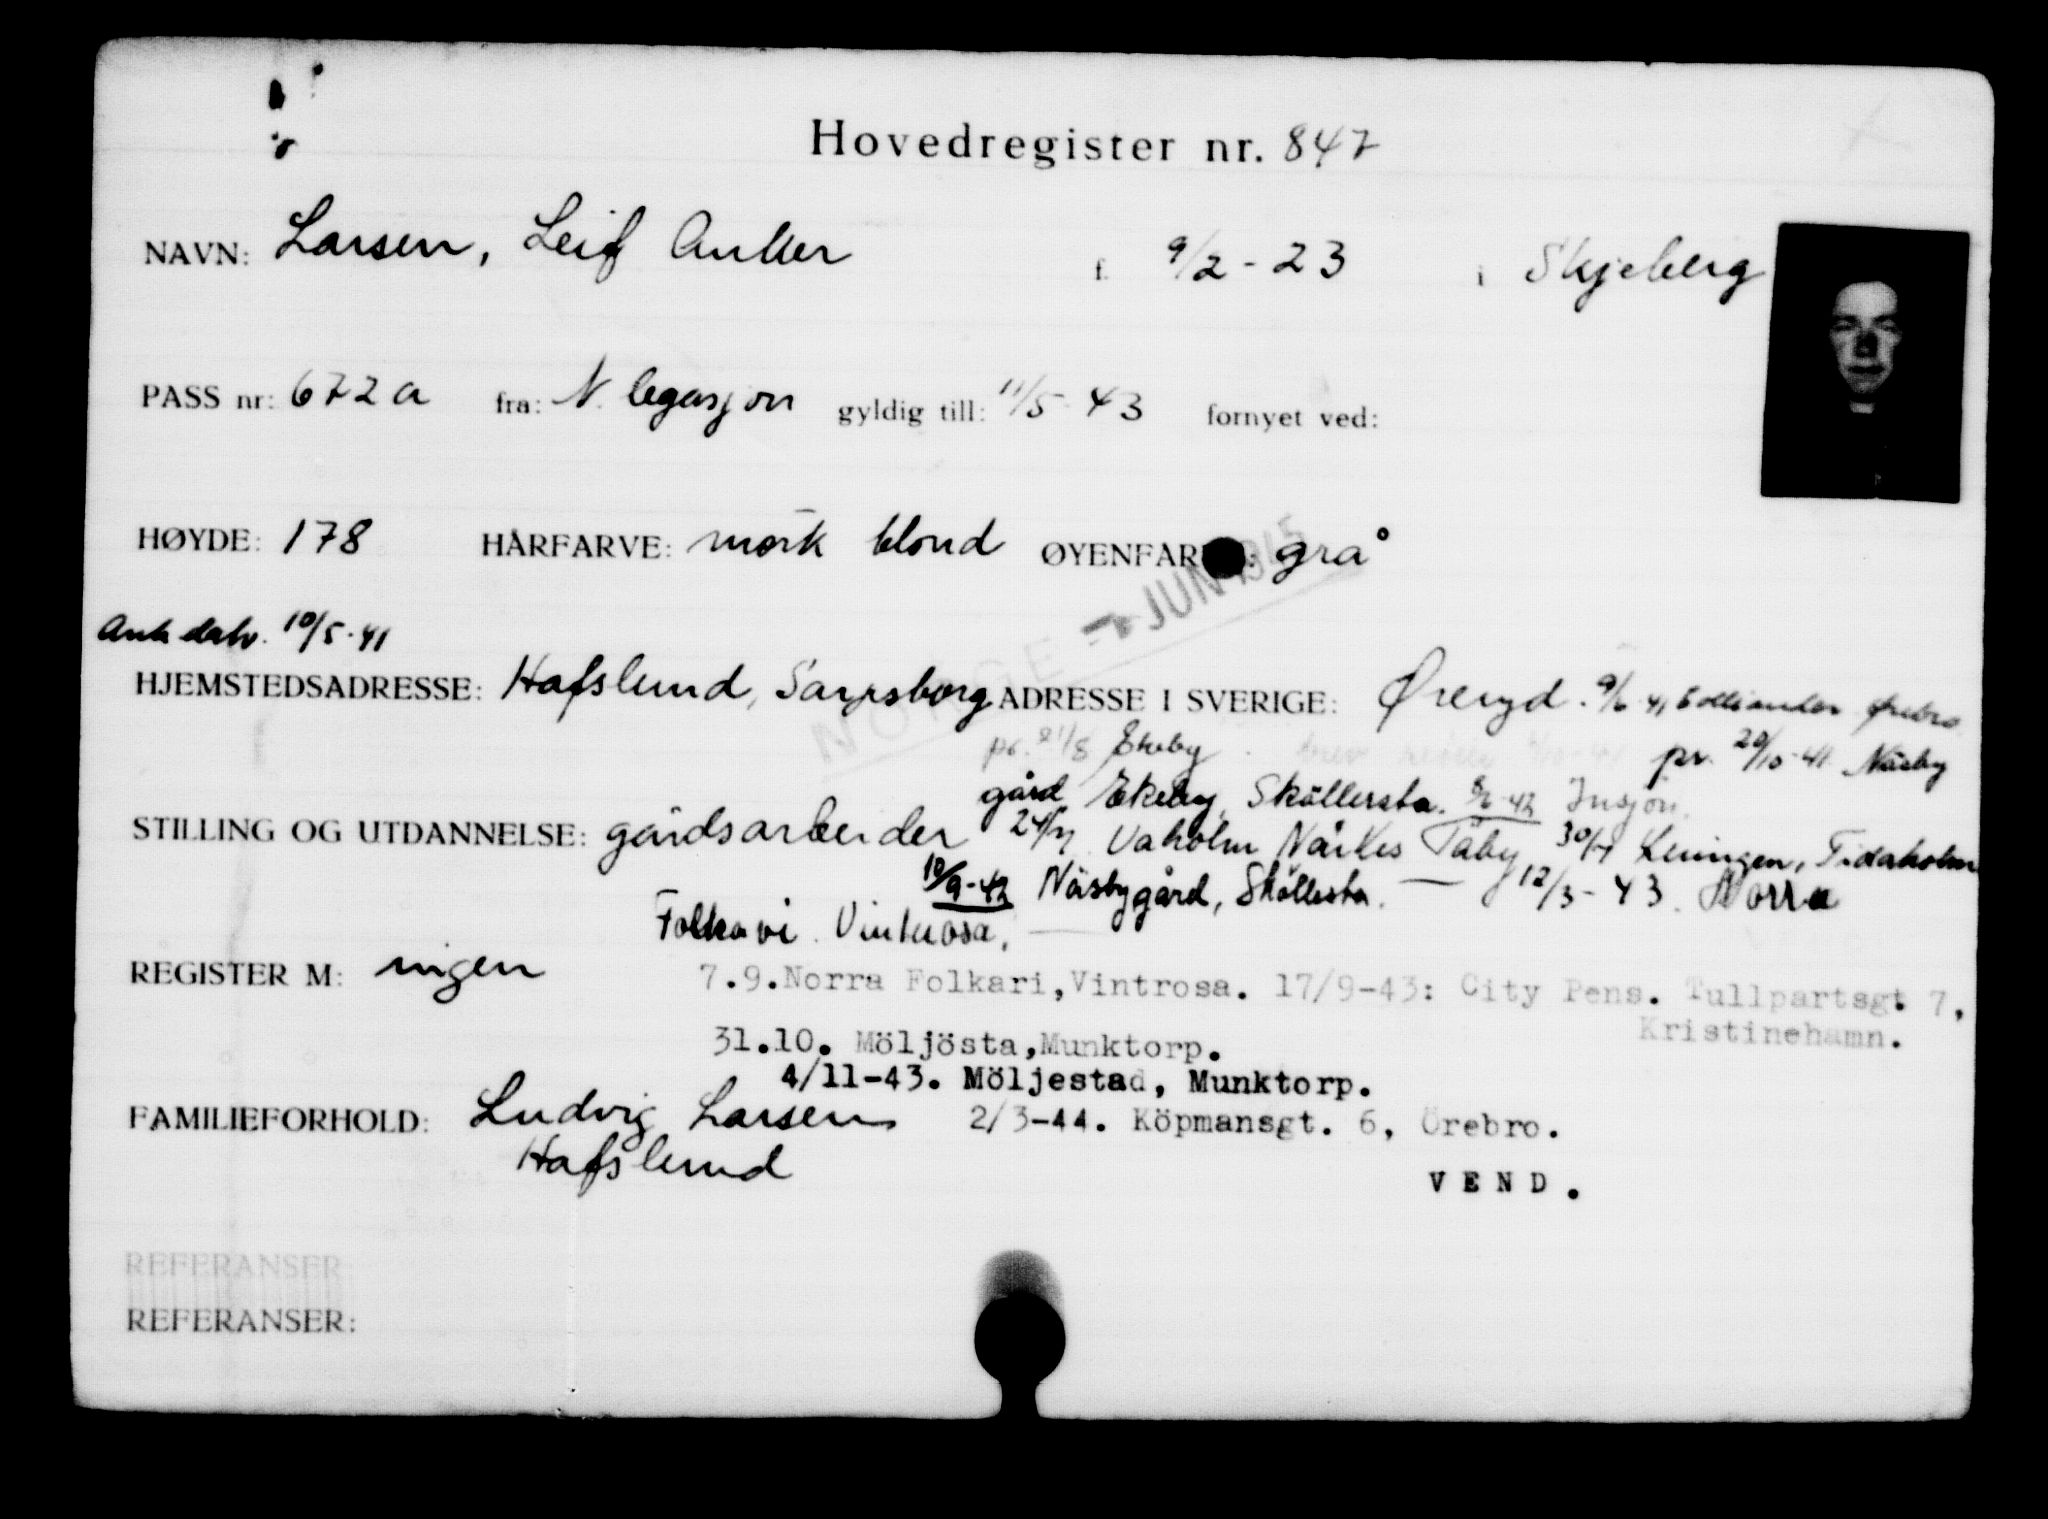 Hovedregister nr. 847
NAVN: Larsen, Leif Anker f. 9/2 - 23 i Skjeberg
PASS nr: 672 a fra: N. legasjon gyldig till: 11/5 - 43 fornyet ved:
HØYDE: 178 HÅRFARVE: mørk blond ØYENFAR : grå
- JUN 1945
Ank dato. 10/5 - 41
HJEMSTEDSADRESSE: Hafslund, Sarpsborg ADRESSE I SVERIGE: Øreryd. 9/6 41
NORGE
pr. 21/8 Ekeby pr. 20/10 - 41 Näsby
gård Ekeby, Sköllersta. 42 Insjön.
STILLING OG UTDANNELSE: gårdsarbeider Vaholm Närkes Täby Tidaholm
10/9 - 42 Näsbygård, Sköllersta. — 12/3 - 43 Norra
Folkavi Vintrosa, —
REGISTER M: ingen
7.9.Norra Folkari,Vintrosa. 17/9-43: City Pens. Tullpartsgt 7,
Kristinehamn.
31.10. Möljösta,Munktorp.
4/11-43. Möljestad, Munktorp.
FAMILIEFORHOLD: Ludvig Larsen 2/3-44. Köpmansgt. 6, Örebro.
Hafslund
VEND.
REFERANSER
REFERANSER: